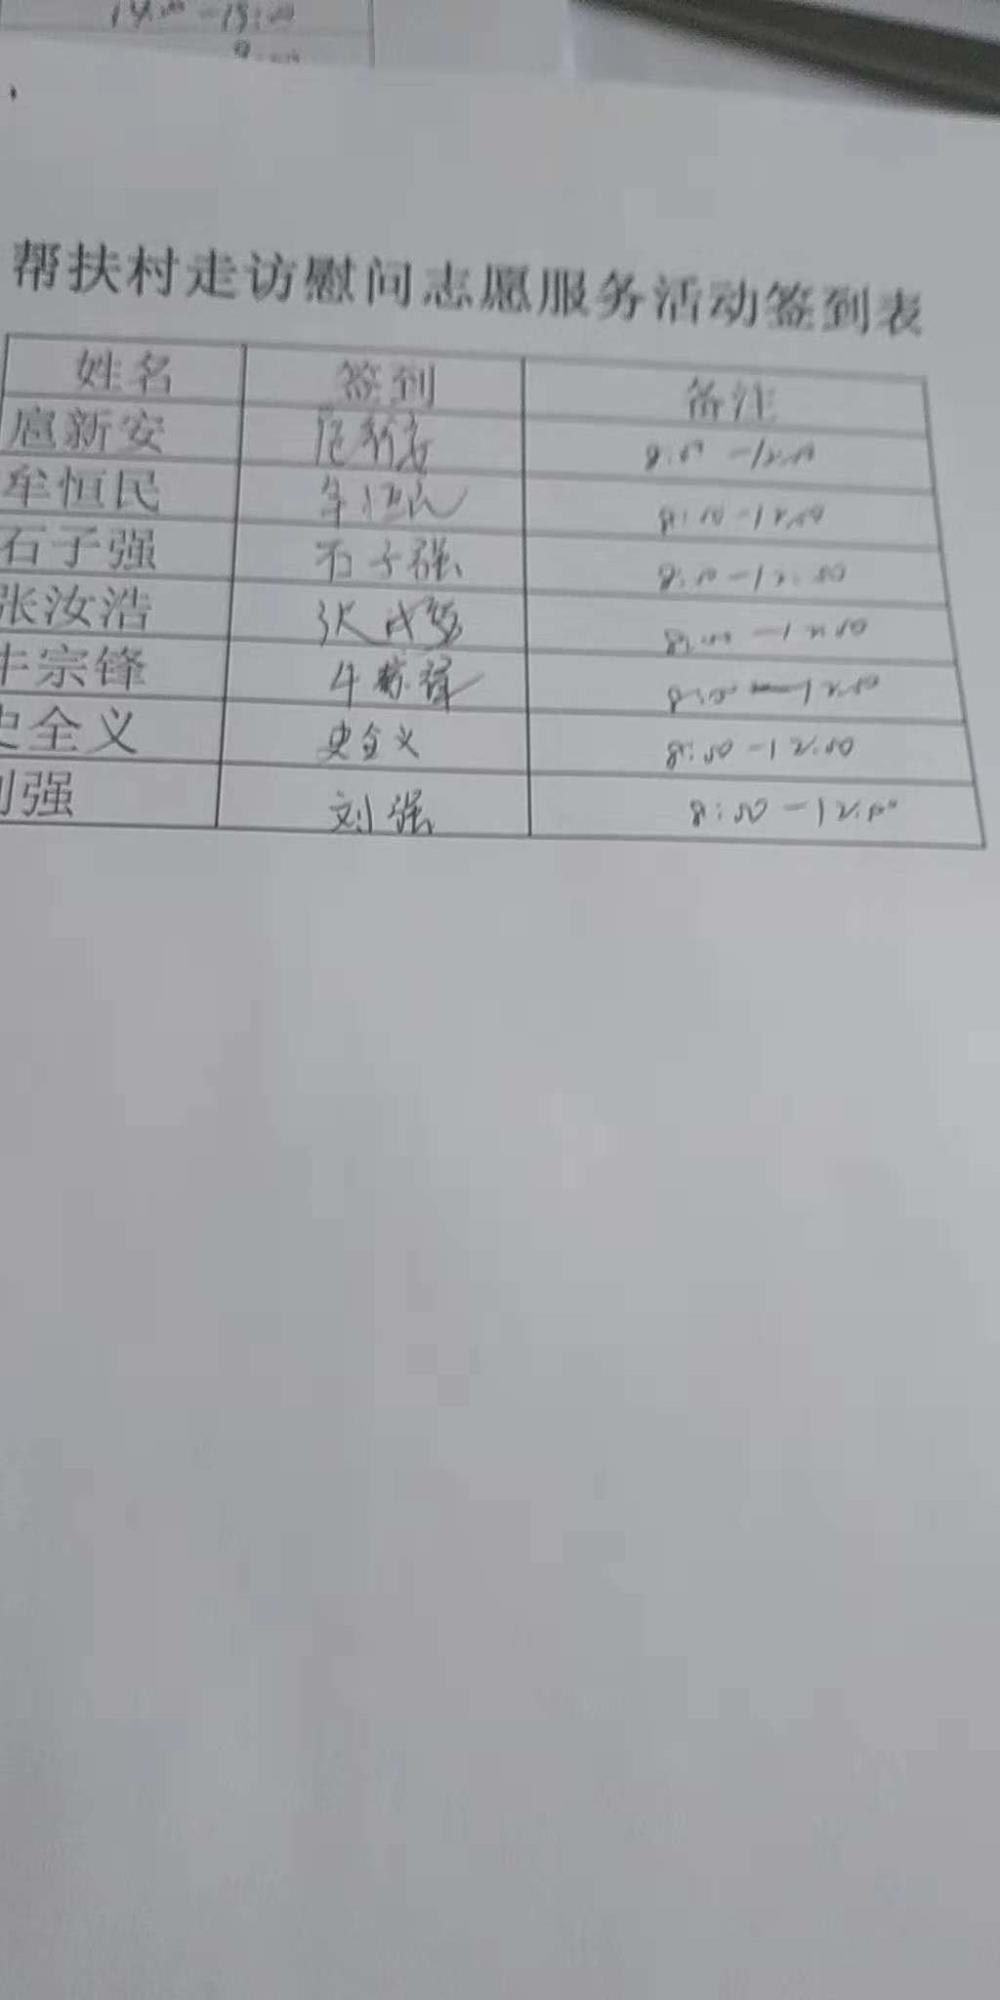 14:00-18:00
帮扶村走访慰问志愿服务活动签到表
姓名 签到 备注
扈新安 扈新安 8:00-12:00
牟恒民 牟恒民 8:00-12:00
石子强 石子强 8:00-12:00
张汝浩 8:00-12:00
牛宗锋 牛宗锋 8:00-12:00
史全义 史全义 8:00-12:00
刘强 刘强 8:00-12:00